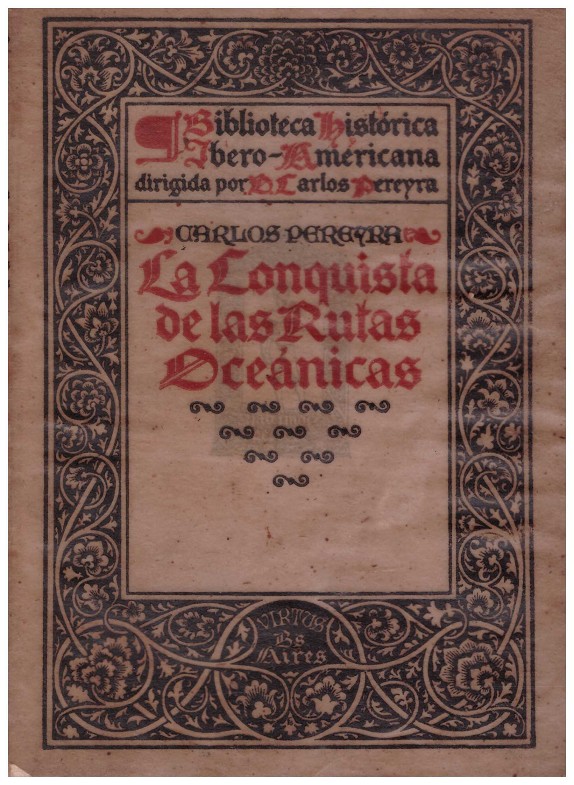 Biblioteca Histórica
Ibero-Américana
dirigida por D. Carlos Pereyra
CARLOS PEREYRA
La Conquista
de las Rutas
Oceánicas
VIRTUS
Bs
Aires